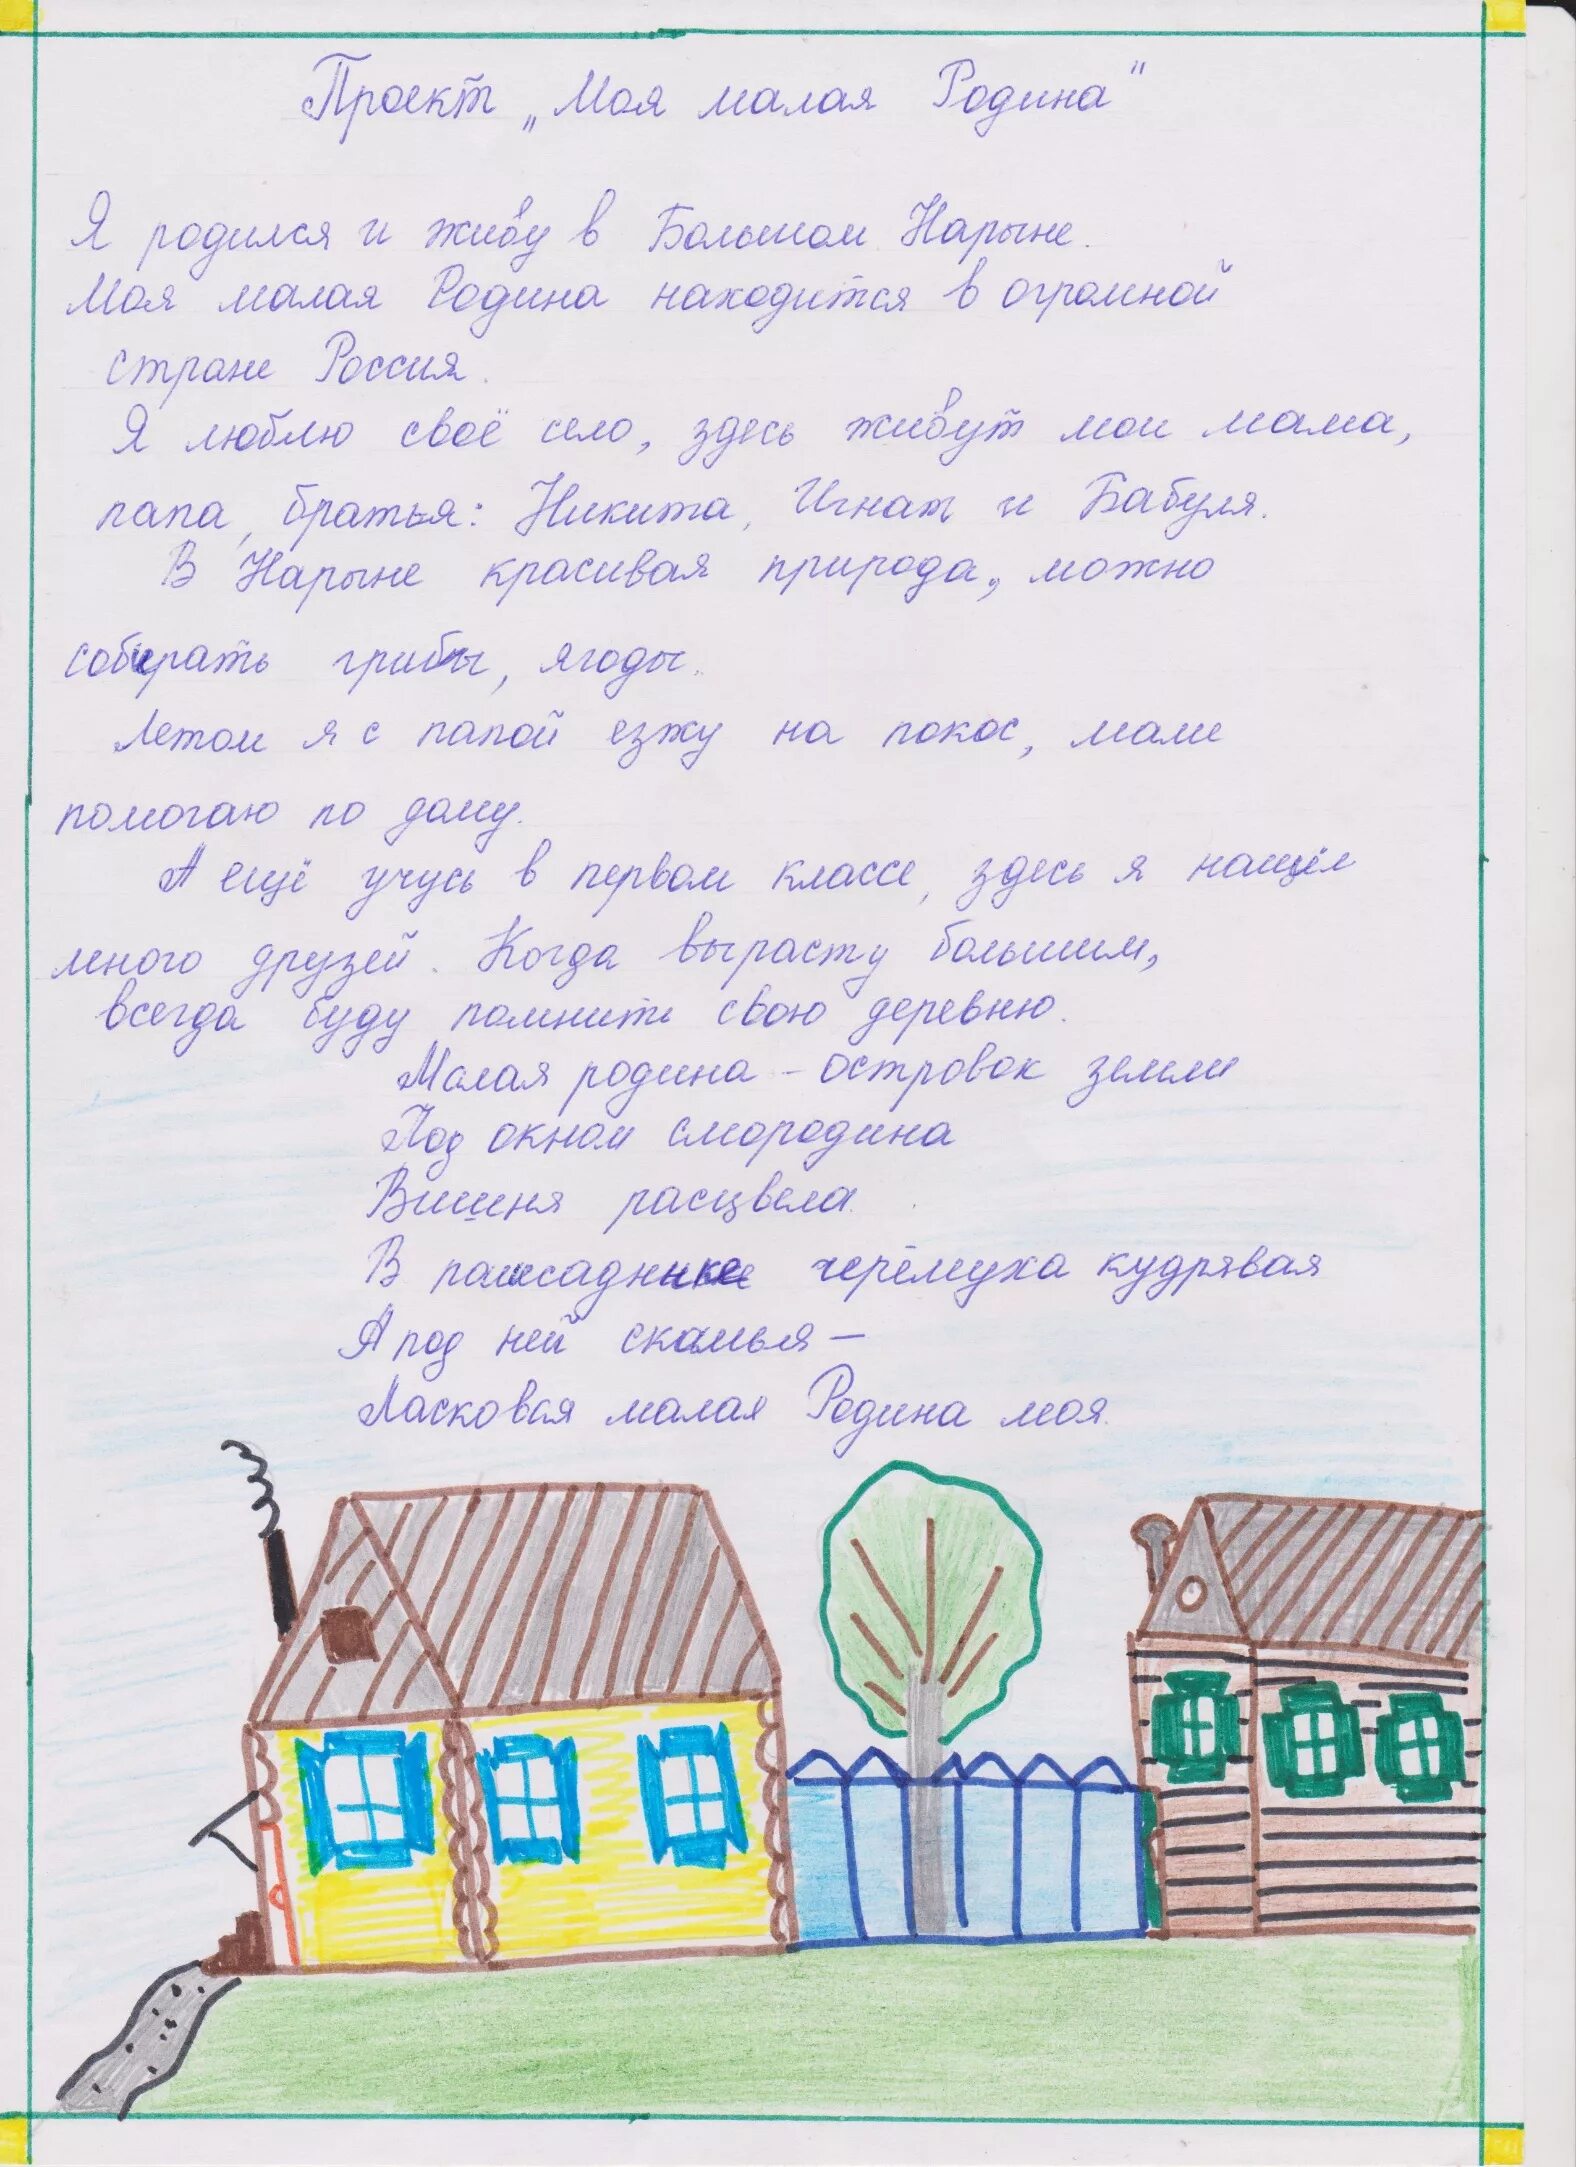 Проект „Моя малая Родина"
Я родился и живу в Большом Нарыне.
Моя малая Родина находится в огромной
стране Россия.
Я люблю своё село, здесь живут мои мама,
папа, братья: Никита, Игнат и Бабуля.
В Нарыне красивая природа, можно
собирать грибы, ягоды.
Летом я с папой езжу на покос, маме
помогаю по дому.
А ещё учусь в первом классе, здесь я нашёл
много друзей. Когда вырасту большим,
всегда буду помнить свою деревню.
Малая родина - островок земли
Под окном смородина
Вишня расцвела.
В палисаднике черёмуха кудрявая
А под ней скамья –
Ласковая малая Родина моя.